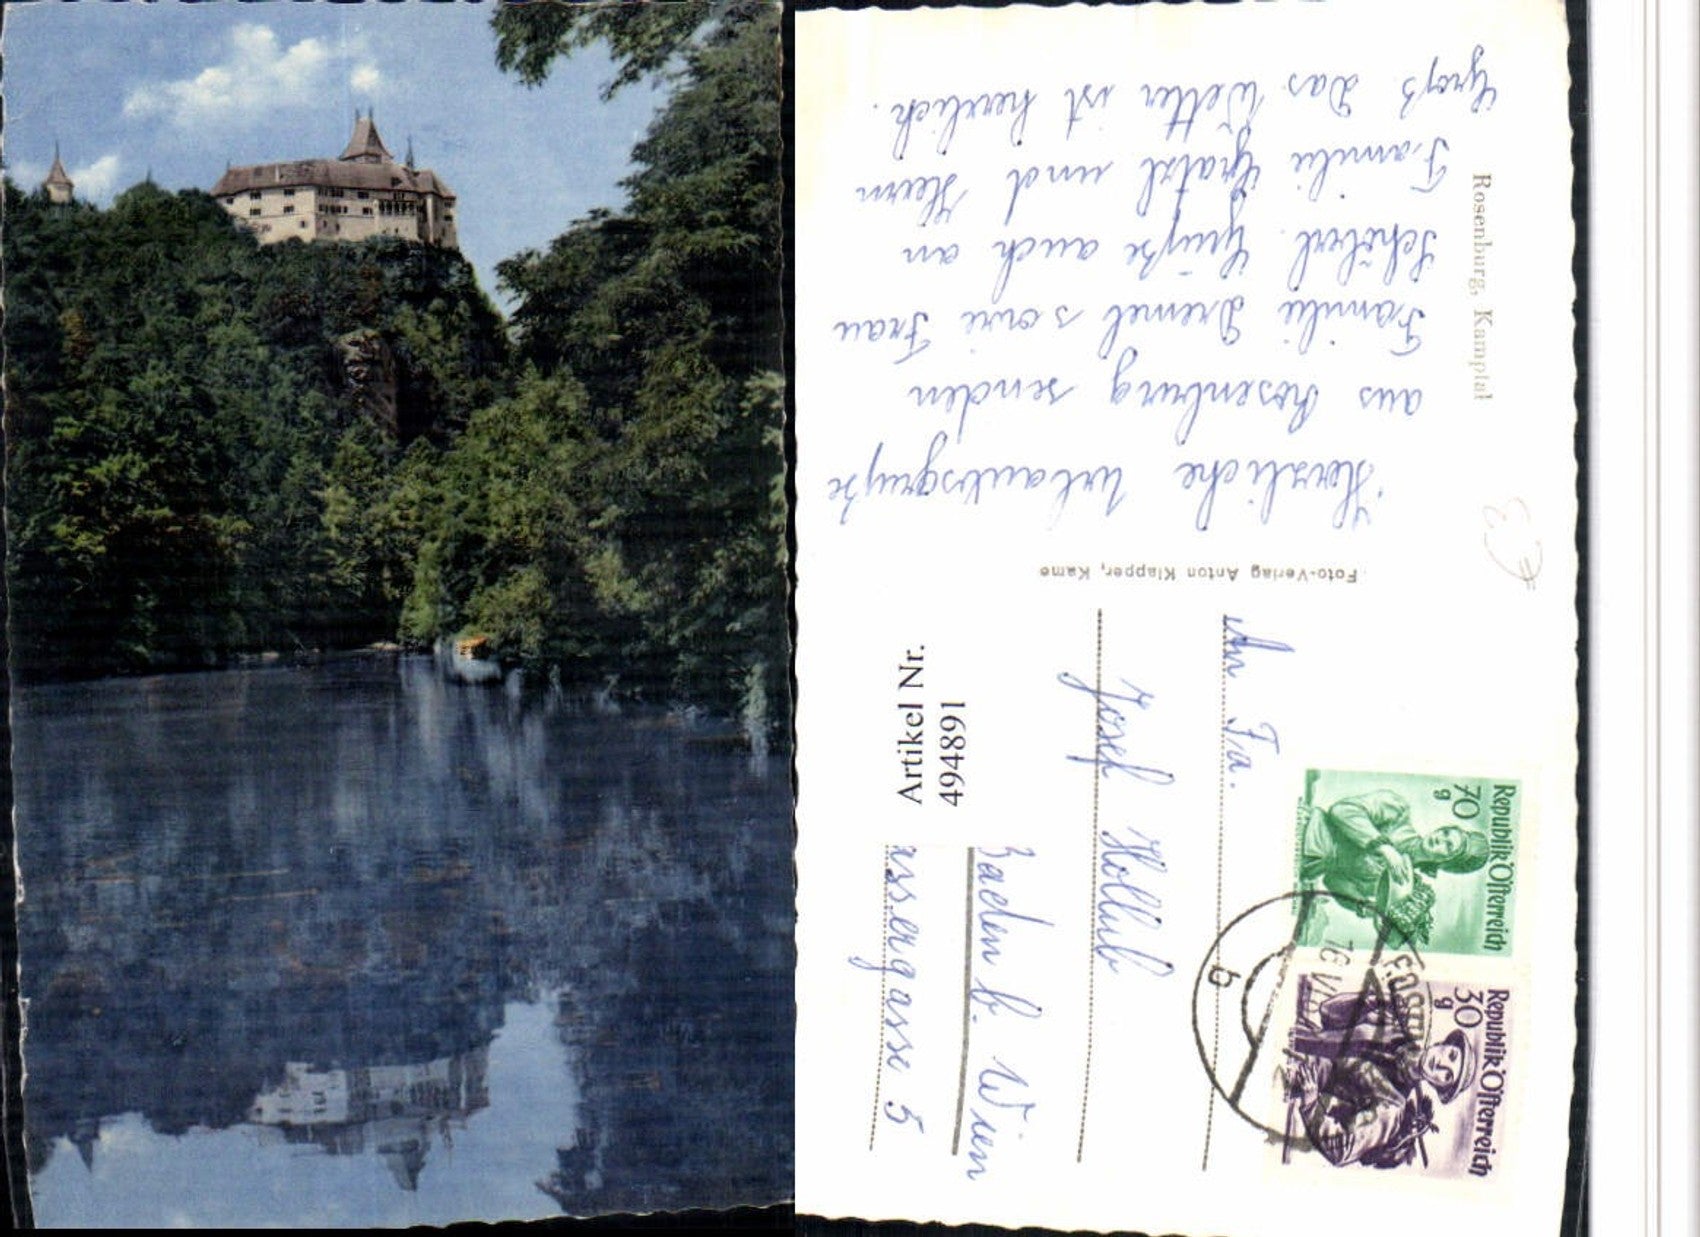 Rosenburg, Kamptal
Herzliche Urlaubsgrüße
aus Rosenburg senden
Familie Dremel sowie Frau
Schöberl. Grüße auch an
Familie Gratzl und Herrn
Groß. Das Wetter ist herrlich.
Foto-Verlag Anton Klapper, Kame
An Fa.
Josef Hollub
Baden b. Wien
assergasse 5
Artikel Nr.
494891
Republik Österreich
70
g
Republik Österreich
30
g
b